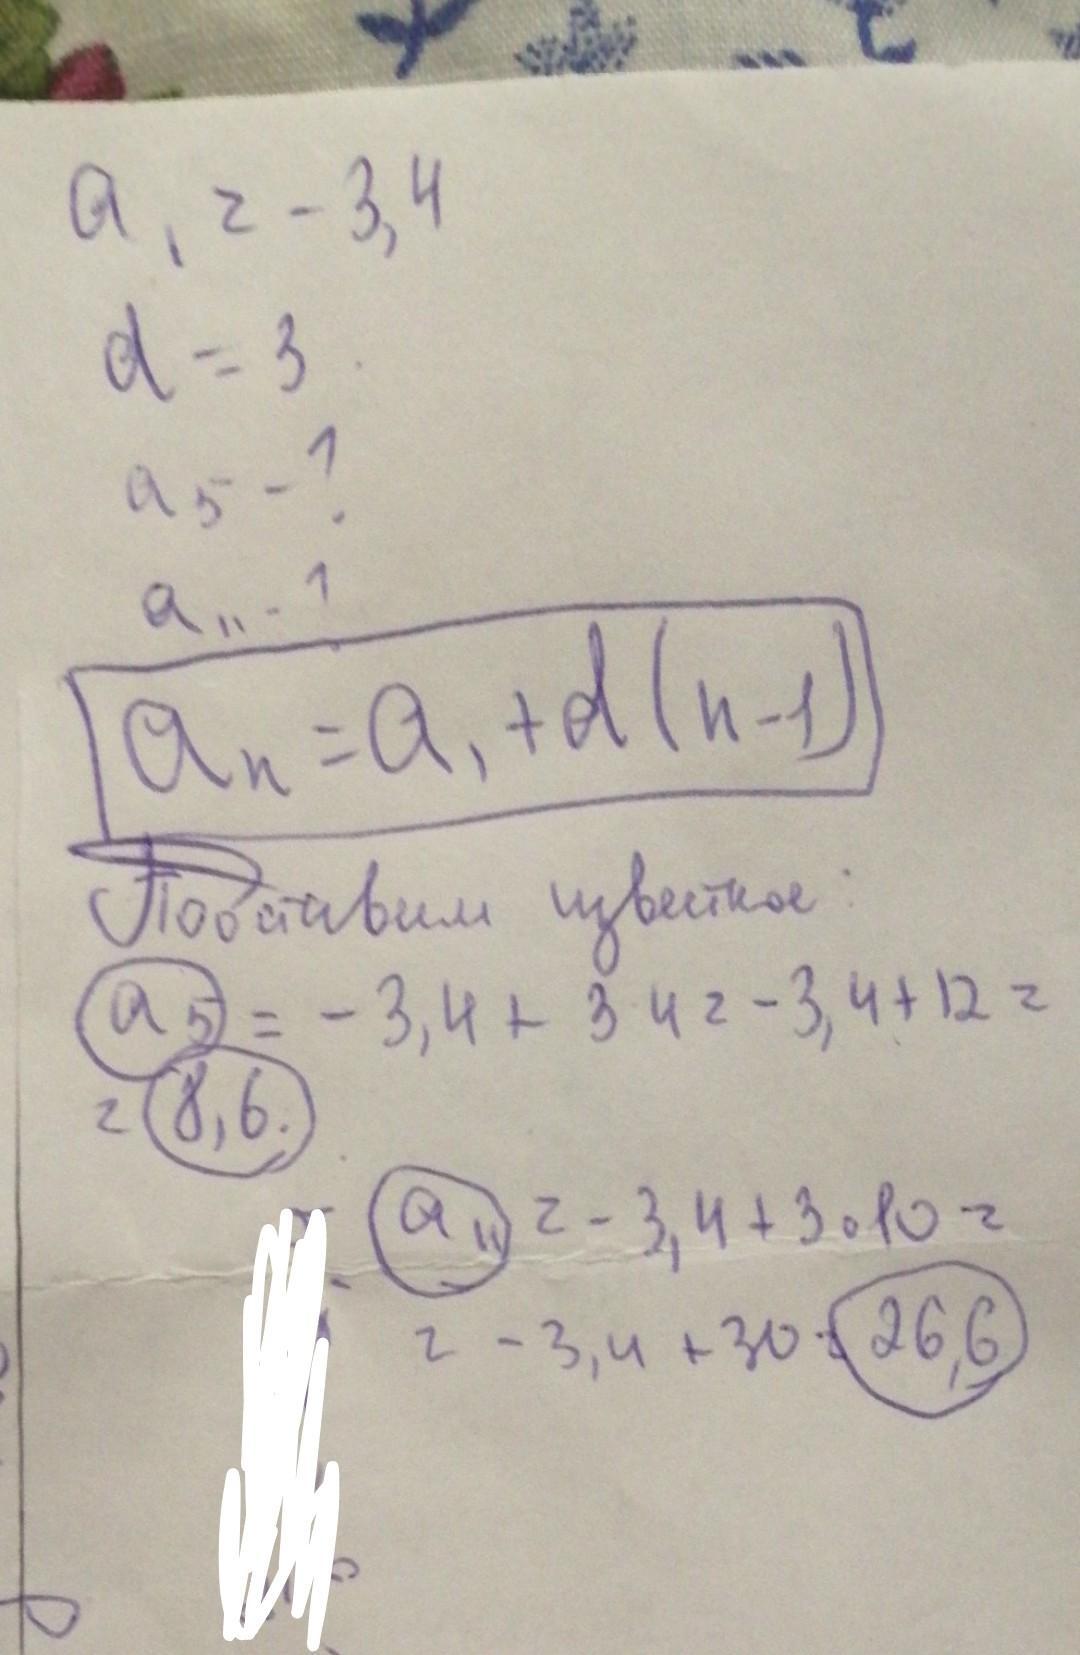 a₁ = -3,4
d = 3
a₅ - ?
a₁₁ - ?
aₙ = a₁ + d(n-1)
Подставим известное:
a₅ = -3,4 + 3·4 = -3,4 + 12 =
= 8,6.
a₁₁ = -3,4 + 3·10 =
= -3,4 + 30 = 26,6